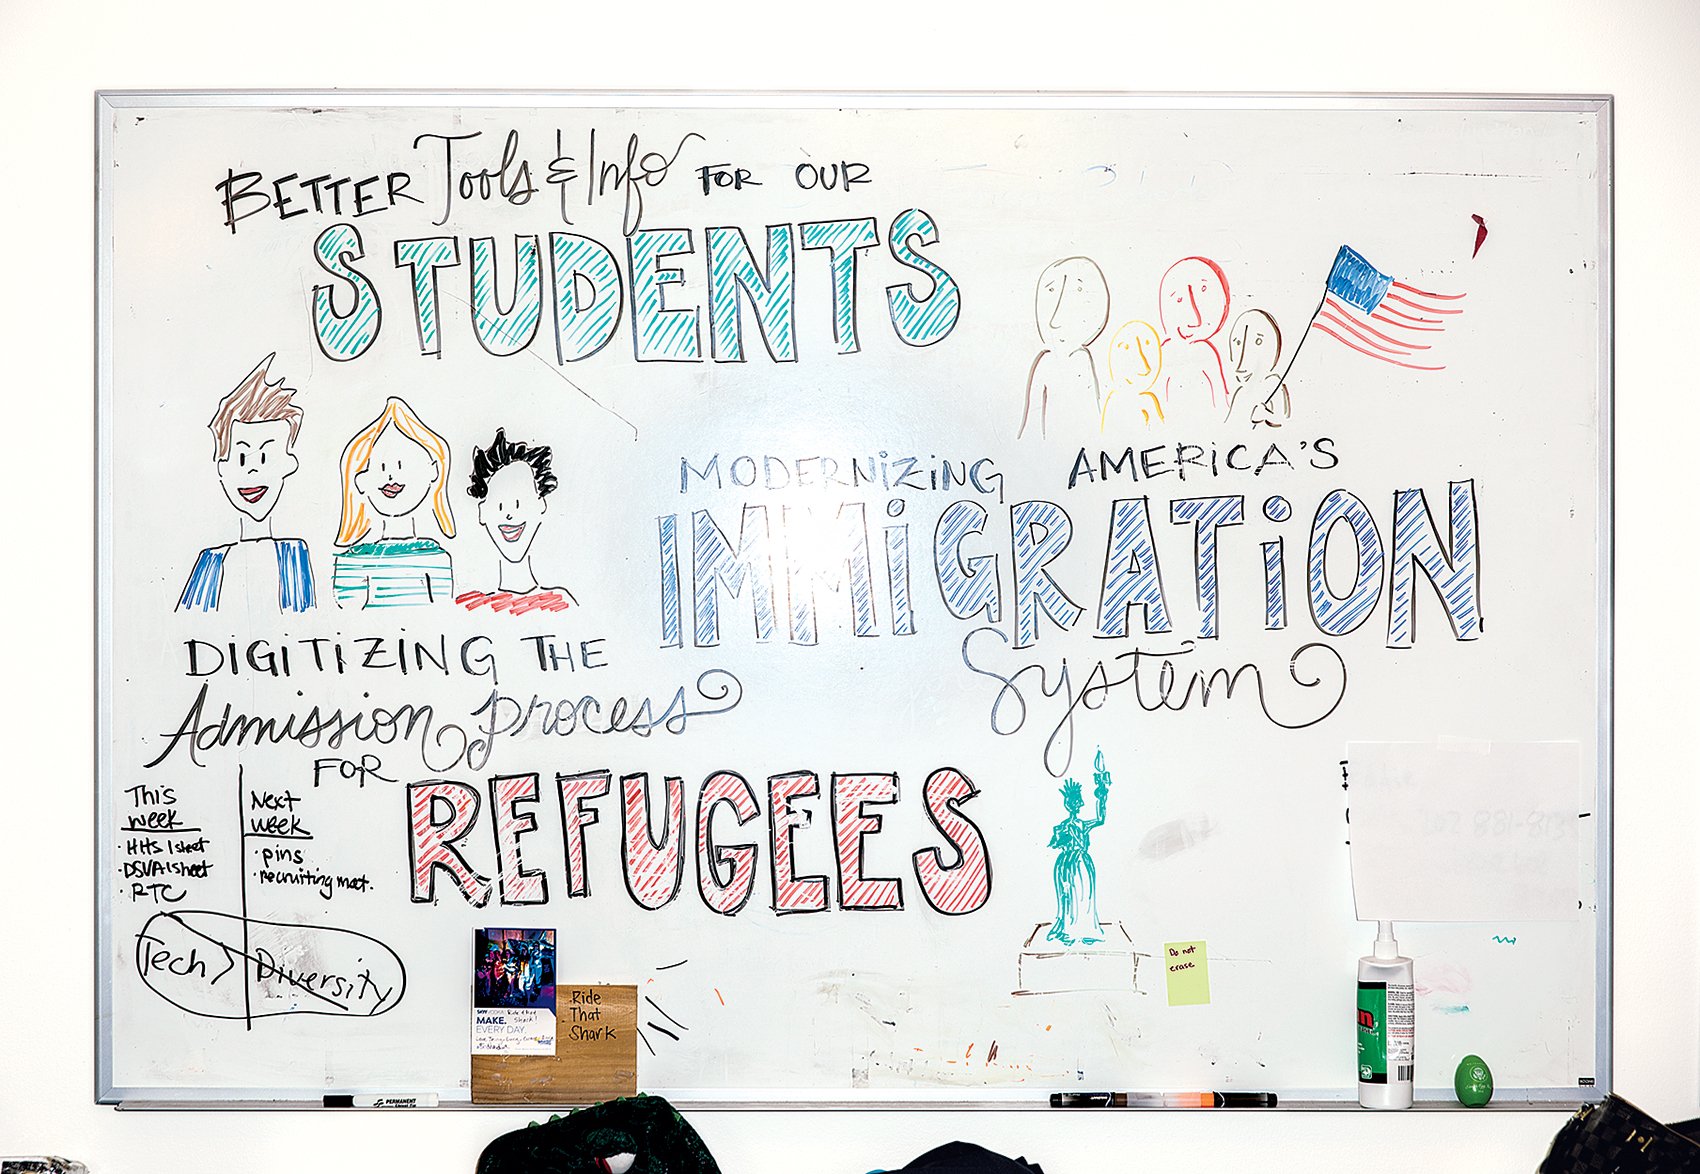 BETTER Tools & Info FOR OUR
STUDENTS
MODERNIZING AMERICA'S
IMMIGRATION
System
DIGITIZING THE
Admission process
FOR REFUGEES
This
week
· HHS 1 sheet
· DSVA 1 sheet
· RTC
Next
week
· pins
· recruiting mat.
Tech > Diversity
Ride that
Shark!
MAKE.
EVERY DAY.
Ride
That
Shark
Do not
erase
PERMANENT